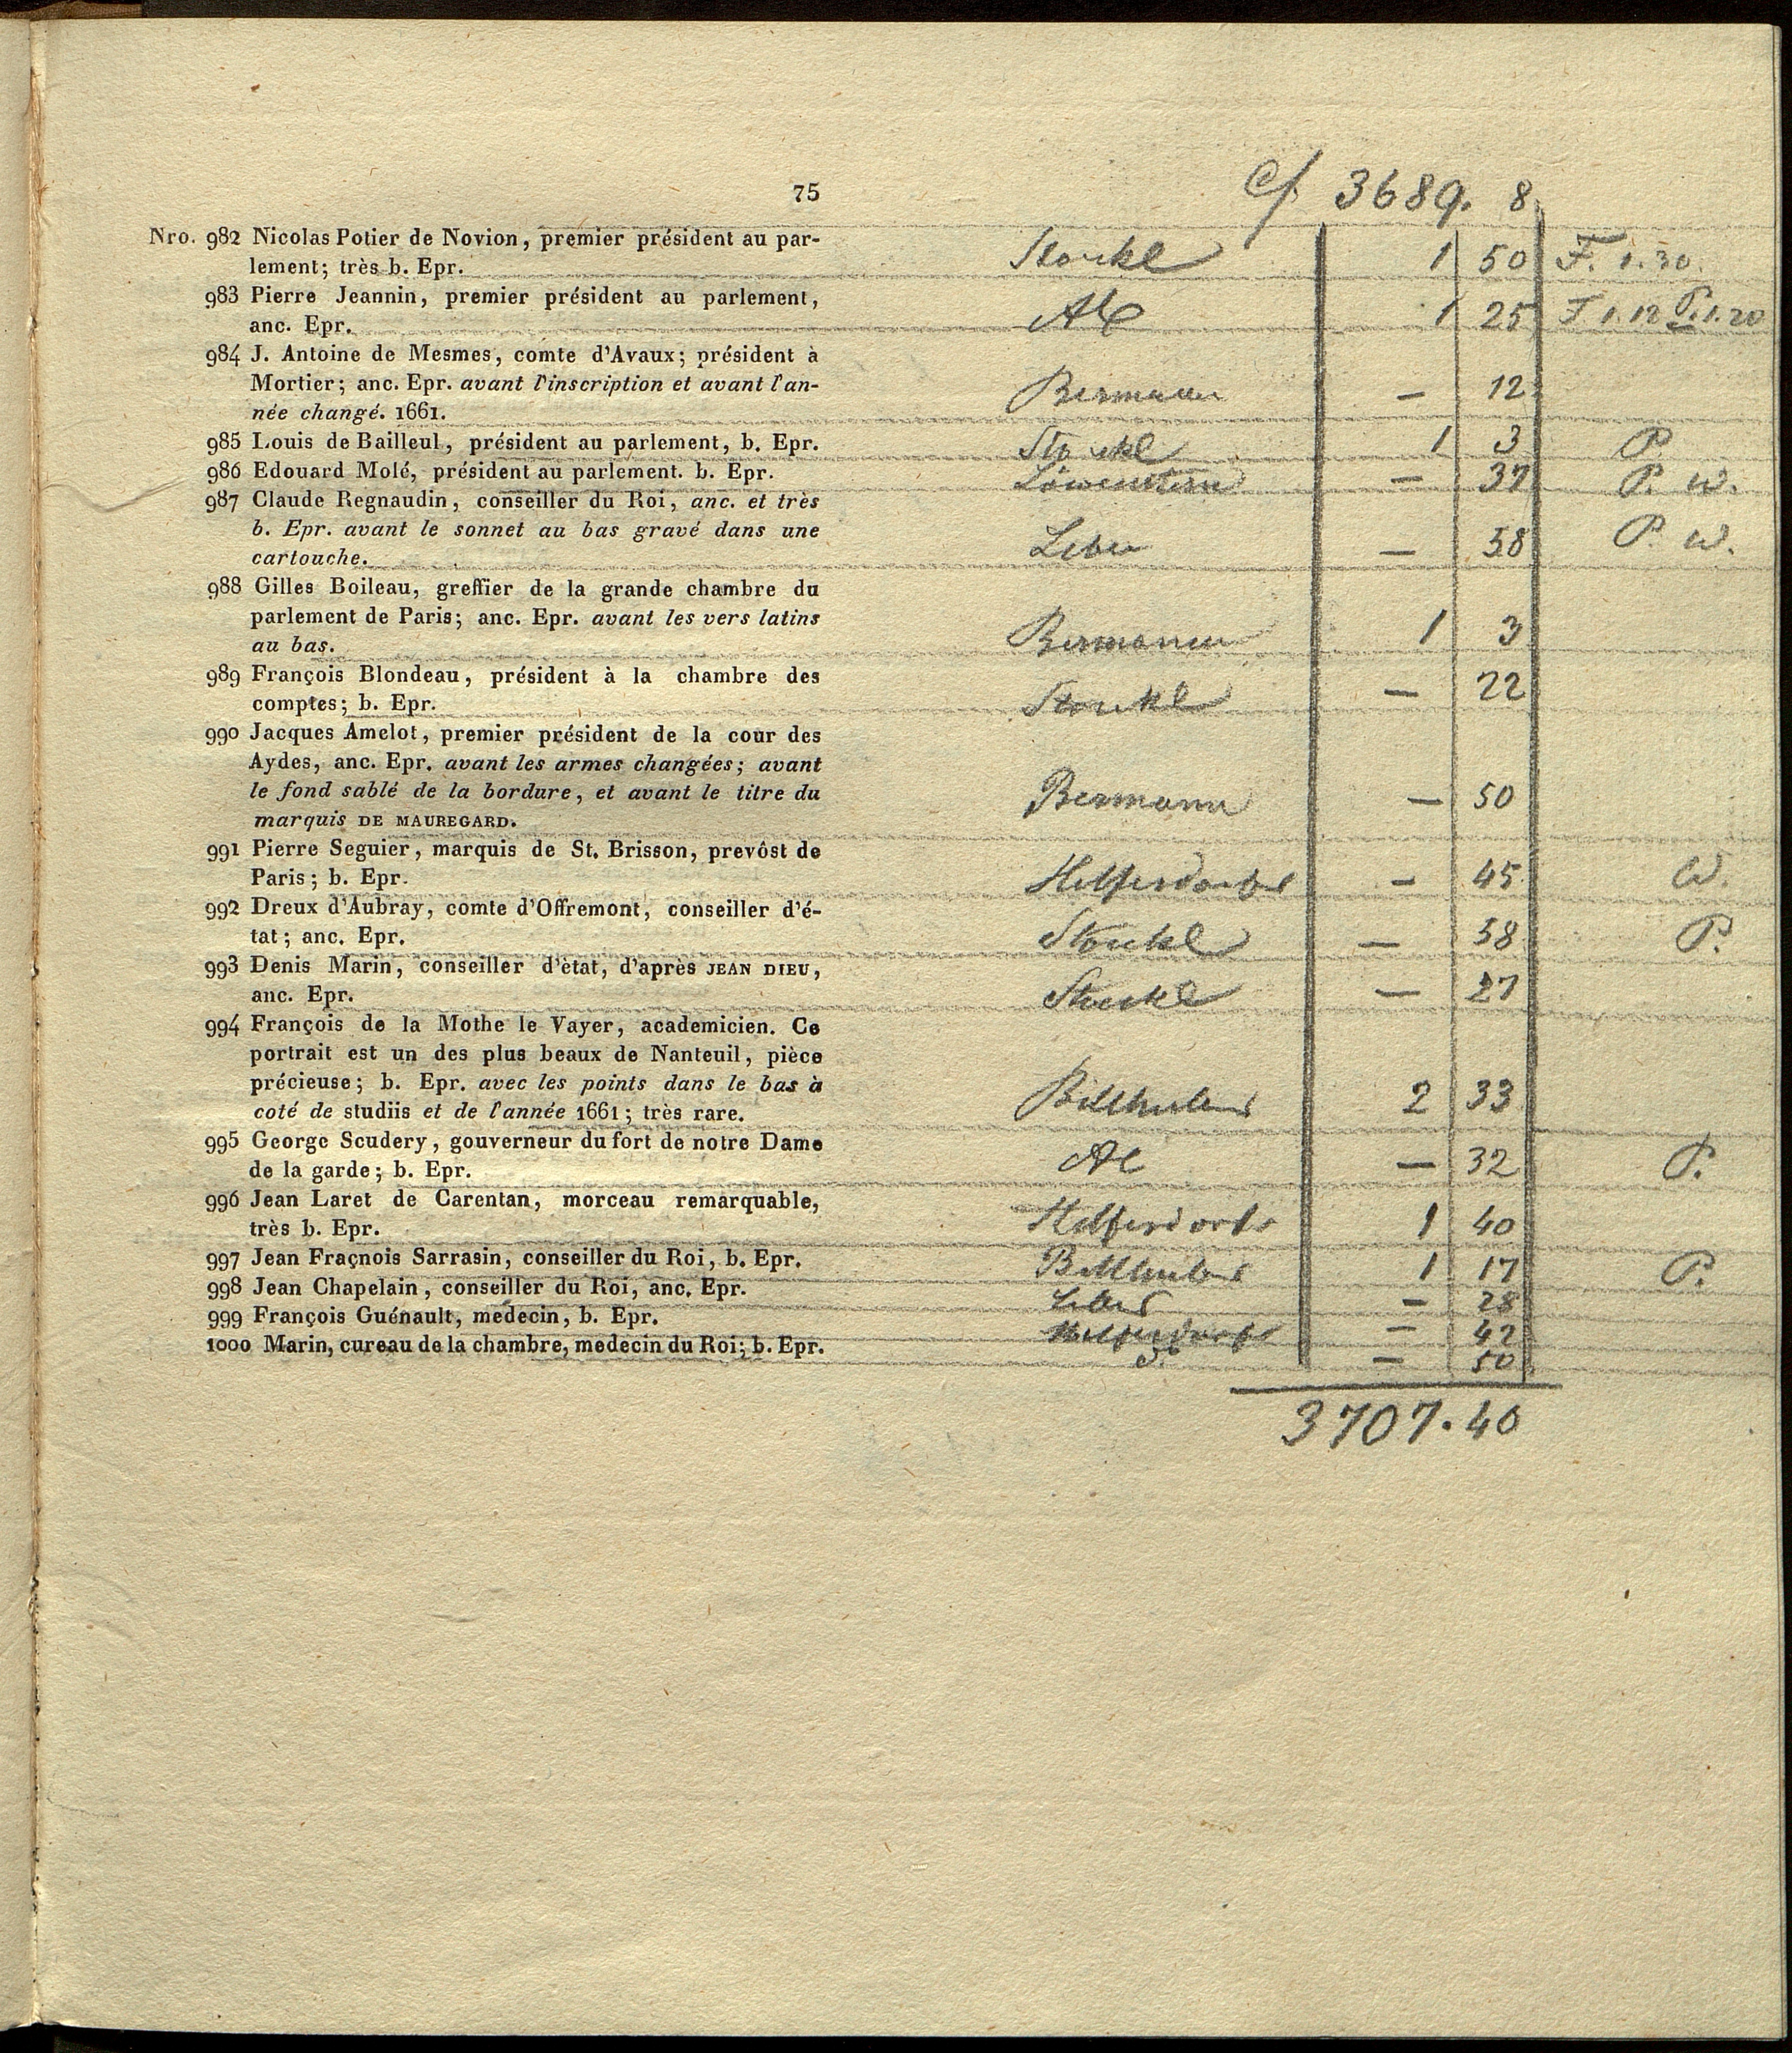 75
3689. 8
Nro. 982 Nicolas Potier de Novion, premier président au par-
lement; très b. Epr.
Stockl 1 50 F. 1.30.
983 Pierre Jeannin, premier président au parlement,
anc. Epr.
1 25 F 1.12 P. 1.20
984 J. Antoine de Mesmes, comte d'Avaux; président à
Mortier; anc. Epr. avant l'inscription et avant l'an-
née changé. 1661.
Bermann — 12
985 Louis de Bailleul, président au parlement, b. Epr.
Stöckl 1 3 P.
986 Edouard Molé, président au parlement. b. Epr.
— 37 P. W.
987 Claude Regnaudin, conseiller du Roi, anc. et très
b. Epr. avant le sonnet au bas gravé dans une
cartouche.
— 58 P. W.
988 Gilles Boileau, greffier de la grande chambre du
parlement de Paris; anc. Epr. avant les vers latins
au bas.
Bermann 1 3
989 François Blondeau, président à la chambre des
comptes; b. Epr.
Stockl — 22
990 Jacques Amelot, premier président de la cour des
Aydes, anc. Epr. avant les armes changées; avant
le fond sablé de la bordure, et avant le titre du
marquis DE MAUREGARD.
Bermann — 50
991 Pierre Seguier, marquis de St. Brisson, prevôst de
Paris; b. Epr.
— 45 W.
992 Dreux d'Aubray, comte d'Offremont, conseiller d'é-
tat; anc. Epr.
Stöckl — 58 P.
993 Denis Marin, conseiller d'ètat, d'après JEAN DIEU,
anc. Epr.
Stockl — 27
994 François de la Mothe le Vayer, academicien. Ce
portrait est un des plus beaux de Nanteuil, pièce
précieuse; b. Epr. avec les points dans le bas à
coté de studiis et de l'année 1661; très rare.
2 33
995 George Scudery, gouverneur du fort de notre Dame
de la garde; b. Epr.
— 32 P.
996 Jean Laret de Carentan, morceau remarquable,
très b. Epr.
1 40
997 Jean Fraçnois Sarrasin, conseiller du Roi, b. Epr.
1 17 P.
998 Jean Chapelain, conseiller du Roi, anc. Epr.
— 28
999 François Guénault, medecin, b. Epr.
— 42
1000 Marin, cureau de la chambre, medecin du Roi; b. Epr.
— 50
3707. 40